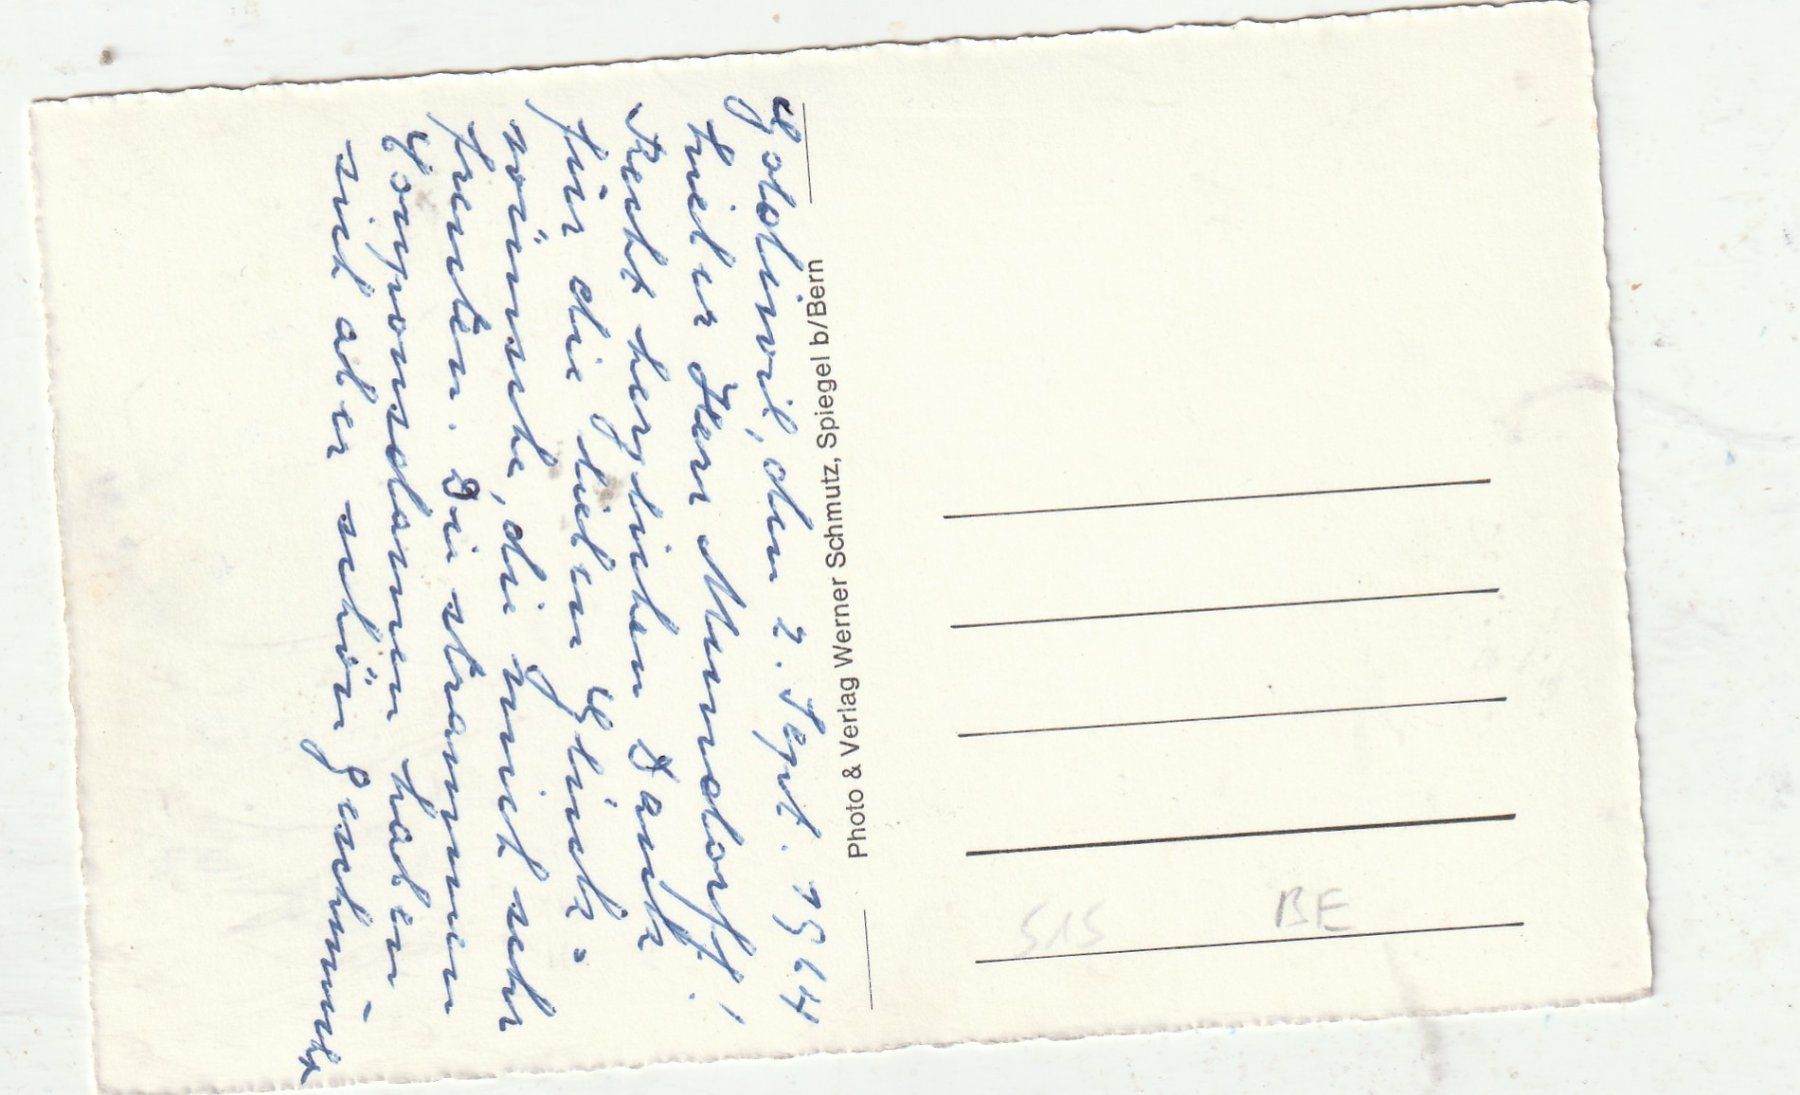 Goldiwil, den 2. Sept. 1964
Lieber Herr Mumdorff!
Recht herzlichen Dank
für die lieben Glück-
wünsche, die mich sehr
freuten. Die strammen
haben
sich aber schön geschmückt
Photo & Verlag Werner Schmutz, Spiegel b/Bern
515
BE